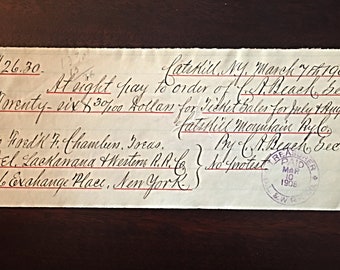 $26.30 Catskill, N.Y. March 7th 190
At sight pay to order of C. A. Beach, Sec
Twenty-six & 30/100 Dollars for Ticket Sales for July & Aug
Catskill Mountain Ry Co.
Fred'k F. Chambers, Treas. By C. A. Beach, Sec
Del. Lackawana & Western R.R. Co. No protest
Exchange Place, New York
TREASURER
PAID
MAR
10
1908